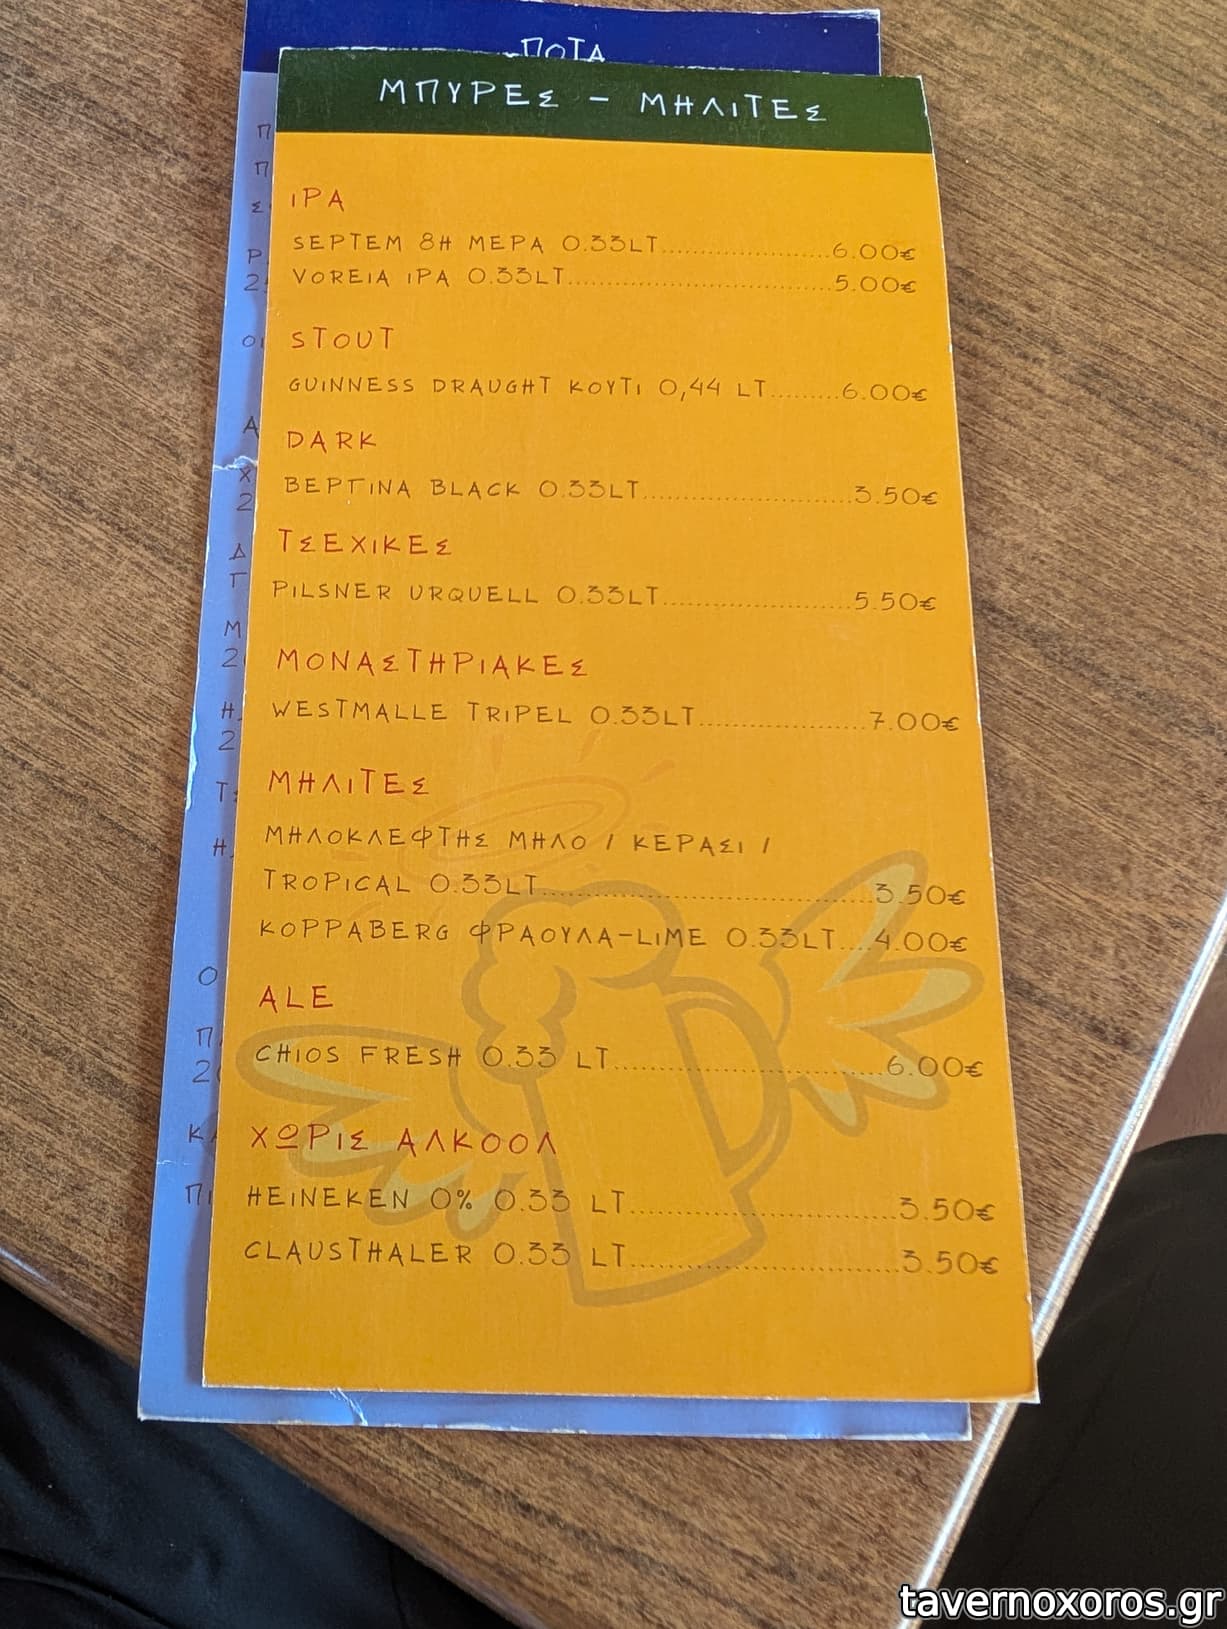 ΠΟΤΑ
ΜΠΥΡΕΣ - ΜΗΛΙΤΕΣ
IPA
SEPTEM 8Η ΜΕΡΑ 0.33LT 6.00€
VOREIA IPA 0.33LT 5.00€
STOUT
GUINNESS DRAUGHT ΚΟΥΤΙ 0,44 LT 6.00€
DARK
ΒΕΡΓΙΝΑ BLACK 0.33LT 3.50€
ΤΣΕΧΙΚΕΣ
PILSNER URQUELL 0.33LT 5.50€
ΜΟΝΑΣΤΗΡΙΑΚΕΣ
WESTMALLE TRIPEL 0.33LT 7.00€
ΜΗΛΙΤΕΣ
ΜΗΛΟΚΛΕΦΤΗΣ ΜΗΛΟ / ΚΕΡΑΣΙ /
TROPICAL 0.33LT 3.50€
KOPPABERG ΦΡΑΟΥΛΑ-LIME 0.33LT 4.00€
ALE
CHIOS FRESH 0.33 LT 6.00€
ΧΩΡΙΣ ΑΛΚΟΟΛ
HEINEKEN 0% 0.33 LT 3.50€
CLAUSTHALER 0.33 LT 3.50€
tavernoxoros.gr